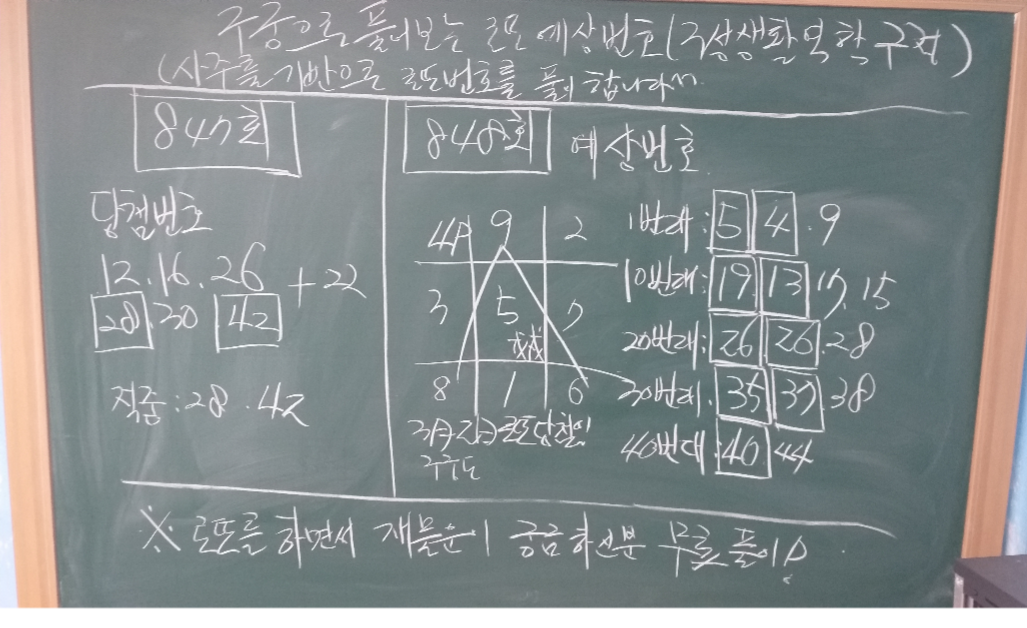 구궁으로 풀어보는 로또 예상번호(구성생활역학
(사주를 기반으로 로또번호를 풀이합니다^^.
847회
당첨번호
12.16.26 + 22
28.30.42
적중:28.42
848회 예상번호.
4 9 2
3 5 7
戊戌
8 1 6
로또당첨일
구궁도
1번대:5 4.9
10번대:19 13 17.15
20번대:26 26.28
30번대.35 37.38
40번대:40 44
※ 로또를 하면서 재물운이 궁금하신분 무료 풀이